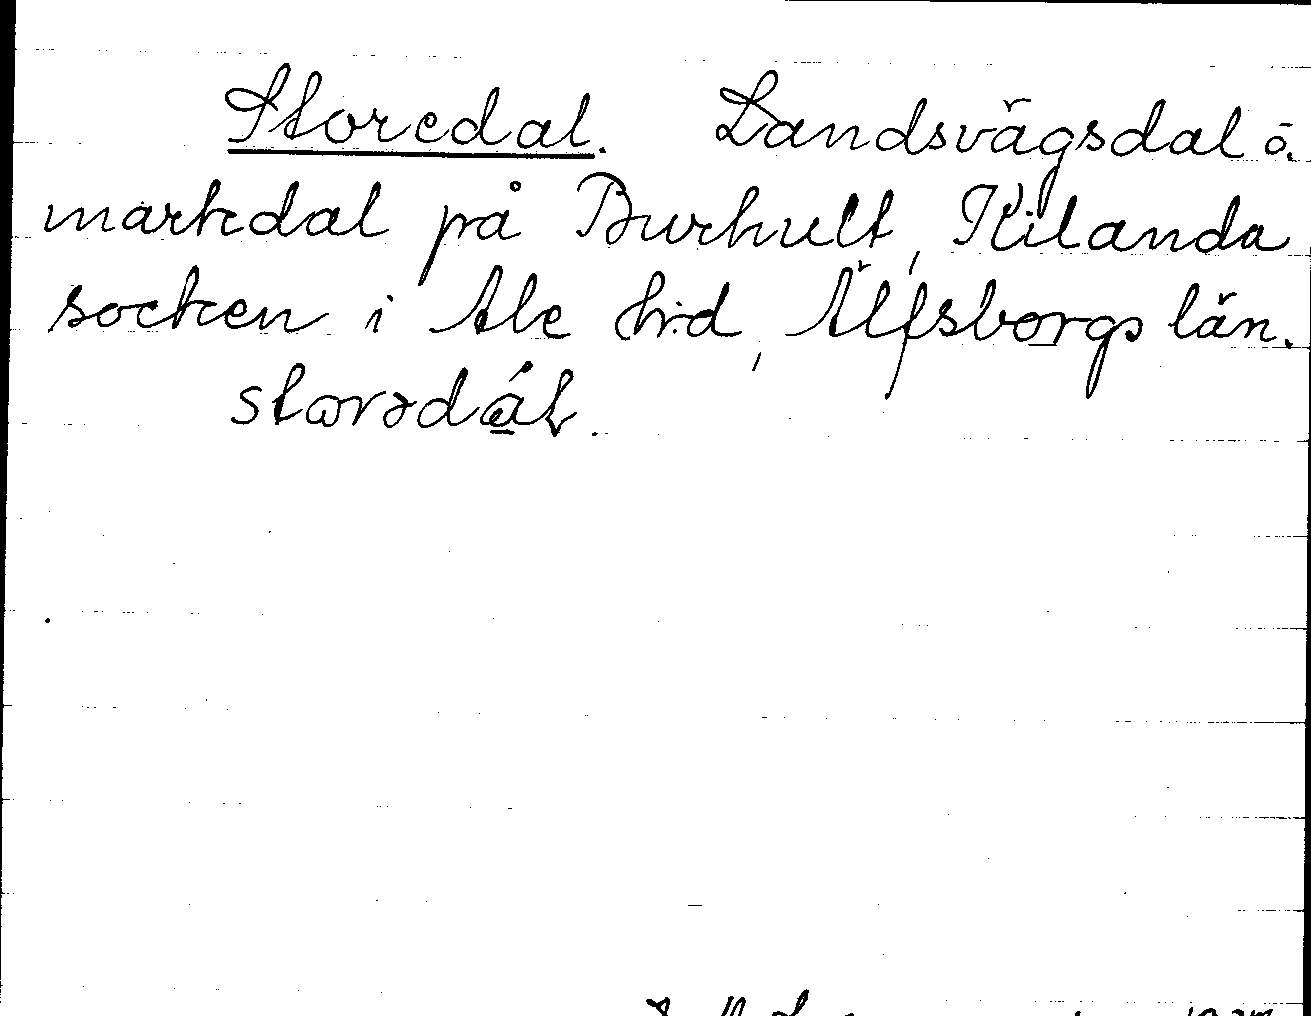 Storedal. Landsvägsdal o.
markdal på Burhult, Kilanda
socken i Ale h:d, Älfsborgs län.
storədál.